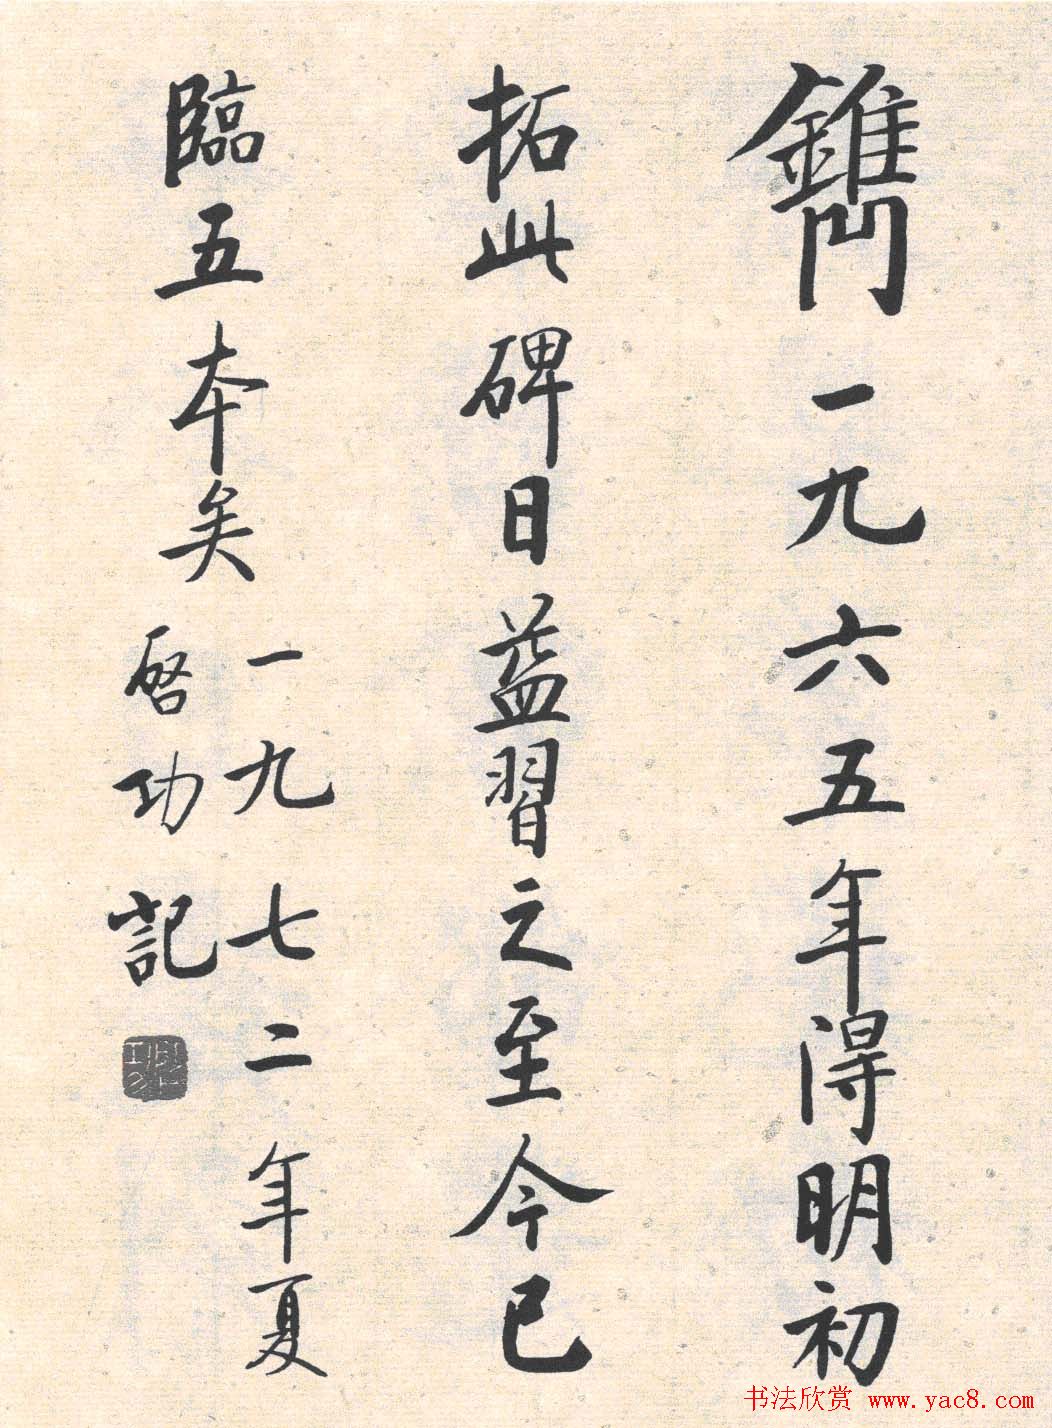 鐫一九六五年得明初
拓此碑日益習之至今已
臨五本矣
一九七二年夏
啓功記
书法欣赏 www.yac8.com